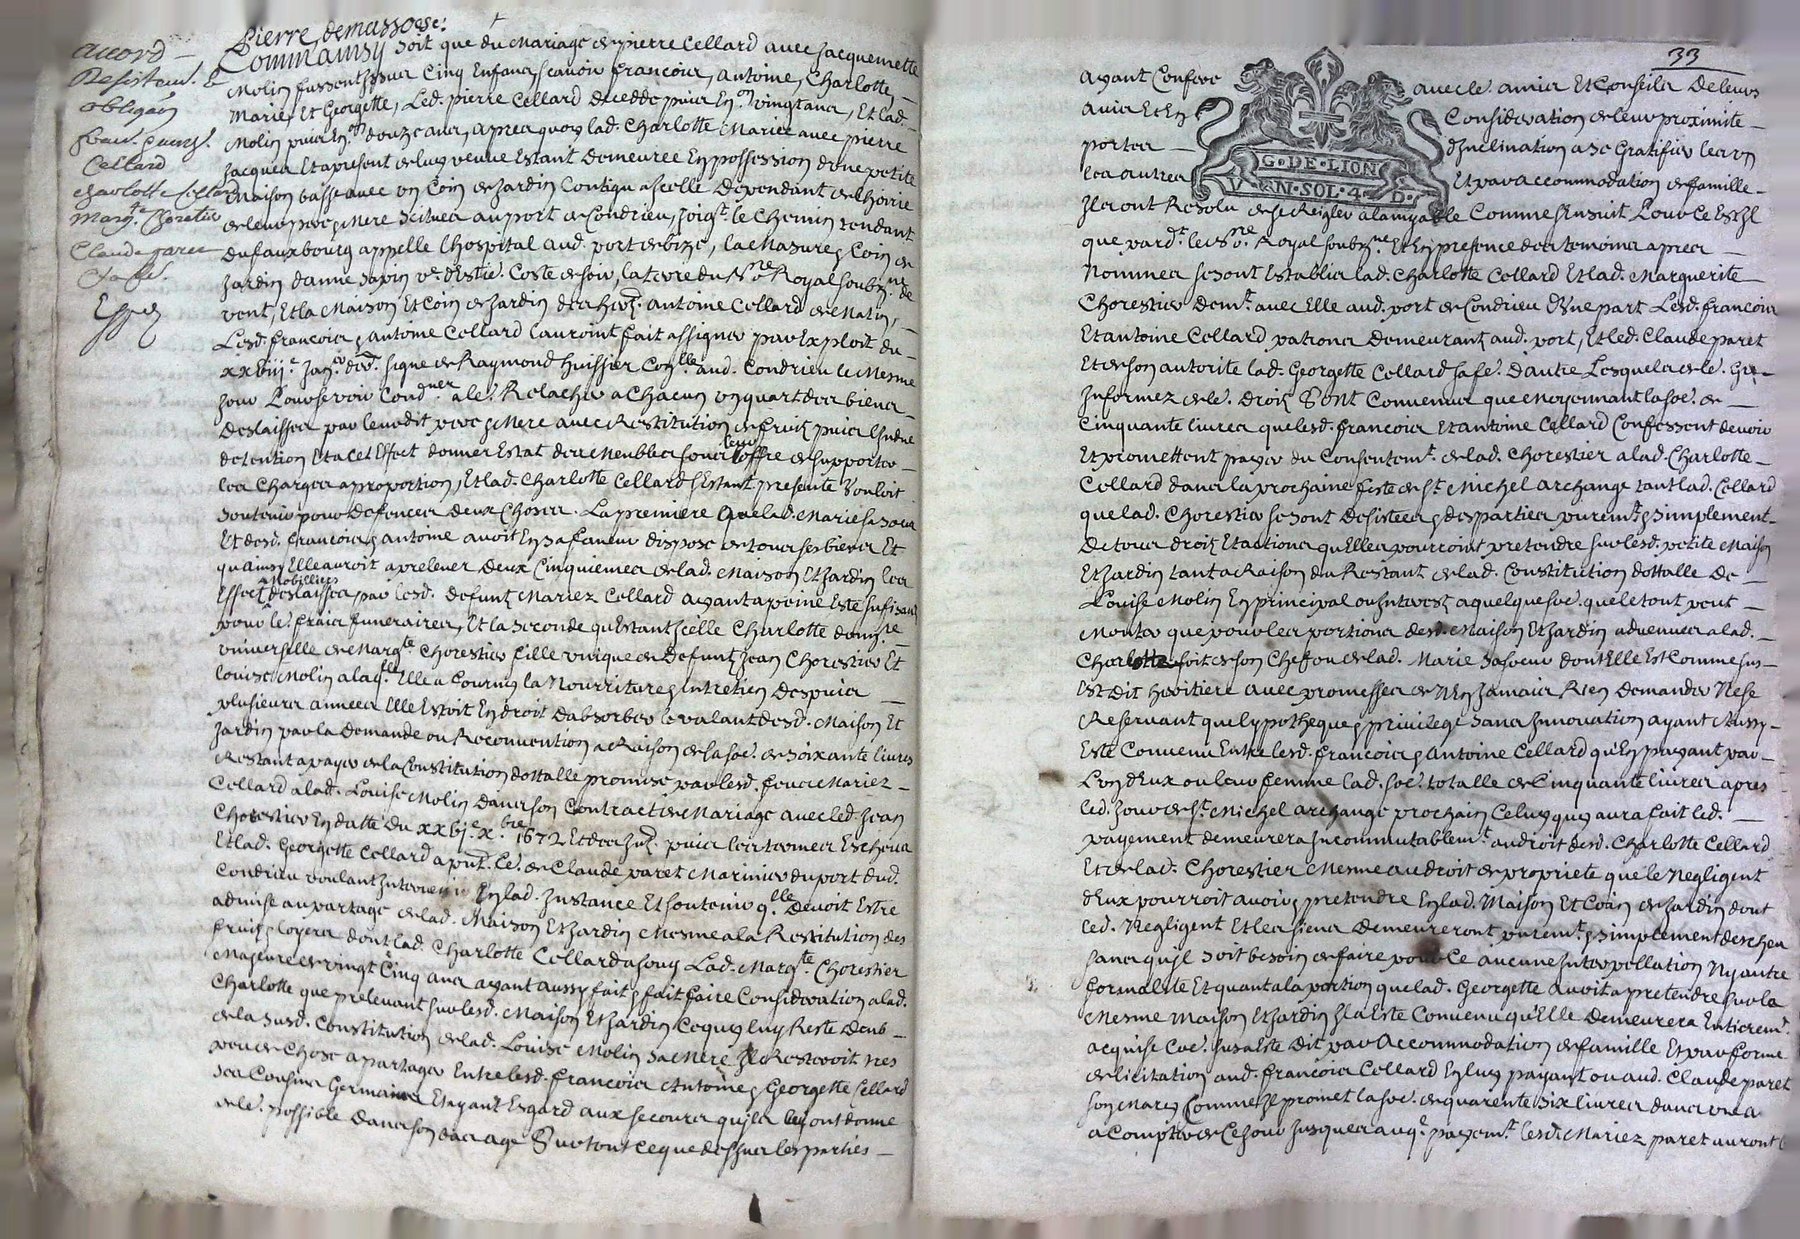 accord
Desistem.t &
obligãon
françois
Cellard
charlotte Cellard
Marg.te Chorestier
Claude paret
&
Exped
Pierre demassosse:
Comm'ainsy soit que du Mariage de pierre Cellard avec Jacquemette
Molin fussent Issus Cinq Enfans, scavoir françois, antoine, Charlotte
Marie, Et Georgette, Led. pierre Cellard decedde puis En.on vingt ans, Et lad.
Molin puis En.on douze ans, apres quoy lad. Charlotte Mariée avec pierre
Jacques Et apresent de luy veuve Estant demeurée En possession d'une petite
Maison basse avec un Coin de Jardin Contigu a Icelle dependant de lhoirie
de leurs pere & Mere Scituez au port de Condrieu, Joig.t le Chemin tendant
du fauxbourg appellé lhospital aud. port de bize, la Masure & Coin de
Jardin d'anne Sapin v.e d'Estie. Coste de soir, la terre du No.re Royal soubz.né de
vent, Et la Maison Et Coin de Jardin des hers. antoine Cellard de Matin,
Lesd. francois & antoine Cellard l'auroint fait assigner par Exploit du
xxbiij.e Jan.er dr. signé de Raymond huissier Con.lle aud. Condrieu le Mesme
Jour Pour se voir Cond.ner a le. Relacher a Chacun un quart des biens
deslaissez par lenodit pere & Mere avec Restitution de fruits puis l'Indue
detention Et a Cet Effect donner Estat des Meubles sous leur offre de supporter
les Charges a proportion, Et lad. Charlotte Cellard s'Estant presentée Vouloit
soutenir pour defences deux Choses. La premiere que lad. Marie sa sœur
Et desd. francois & antoine avoit En sa faveur disposé de tous ses biens Et
qu'ainsy Elle auroit a prelever deux Cinquiemes de lad. Maison Et Jardin les
Effects Mobiliers deslaissez par lesd. defunts Mariez Cellard ayant a peine Esté sufisant
pour le. fraix funeraires, Et la seconde qu'Estant Icelle Charlotte donn.re
universelle de Marg.te Chorestier fille unique de defunts Jean Chorestier Et
louise Molin alaq.lle Elle a fourny la Nourriture & Entretien despuis
plusieurs années Elle Estoit En droit d'absorber le valant desd. Maison Et
Jardin par la demande ou Reconvention a Raison de la soe. de soixante livres
Restant a payer de la Constitution dottalle promise par lesd. feus Mariez
Cellard a lad. Louise Molin dans son Contract de Mariage avec led. Jean
Chorestier En datte du xxbj.e x.bre 1672 Et des Intz. puis les termes Escheus
Et lad. Georgette Cellard a pnt. fe. de Claude paret Marinier du port dud.
Condrieu voulant Intervenir En lad. Instance Et soutenir q.lle devoit Estre
admise au partage de lad. Maison Et Jardin Mesme a la Restitution des
fruits & loyers dont lad. Charlotte Cellard a Jouy Lad. Marg.te Chorestier
Majeure de vingt Cinq ans ayant aussy fait & fait faire Consideration a lad.
Charlotte que prelevant sur lesd. Maison Et Jardin Ce quy luy Reste deub
de la susd. Constitution de lad. Louise Molin sa Mere Il Resteroit tres
peu de Chose a partager Entre lesd. francois Antoine & Georgette Cellard
ses Cousins Germains Et ayant Esgard aux secours qu'Ils luy ont donné
de le. possible dans son bas age Sur tout ce que dessus les parties
33
ayant Conferé avec le. amis Et Conseils De leurs
avis Et En Consideration de leur proximité
portés d'Inclination a se Gratifier les uns
les autres Et par accommodation de famille
G·DE·LION
V·N·SOL·4·D·
Ils ont Resolu de se Regler a lamyable Comme s'Ensuit Pour Ce Est Il
que pard.t le No.re Royal soubz.né Et En presence des temoins apres
Nommez se sont Establies lad. Charlotte Cellard Et lad. Marguerite
Chorestier dem.t avec Elle aud. port de Condrieu d'Une part Lesd. francois
Et antoine Cellard patrons Demeurants aud. port, Et led. Claude paret
Et de son autorité lad. Georgette Cellard sa fe. d'autre Lesquels de le. Gré
Informez de le. droits Sont Convenus que Moyennant la soe. de
Cinquante livres que lesd. francois Et antoine Cellard Confessent devoir
Et promettent payer du Consentem.t de lad. Chorestier a lad. Charlotte
Cellard dans la prochaine feste de S.t Michel archange tant lad. Cellard
que lad. Chorestier se sont desistées & desparties purem.t & simplement
De tous droits Et actions qu'Elles pourroint pretendre sur lesd. petite Maison
Et Jardin tant a Raison du Restant de lad. Constitution dottalle de
Louise Molin En principal ou Interests a quelque soe. que le tout peut
Monter que pour les portions desd. Maison Et Jardin advenues a lad.
Charlotte soit de son Chef ou de lad. Marie sa sœur dont Elle Est Comme sus
Est Dit heritiere avec promesses de N'En Jamais Rien Demander Ne se
Reservant que lypotheque & privilege sans Innovation ayant Aussy
Esté Convenu Entre lesd. francois & Antoine Cellard qu'En payant par
L'un d'Eux ou leur femme lad. soe. totalle de Cinquante livres apres
led. Jour de S.t Michel archange prochain Celuy quy aura fait led.
payement demeurera Incommutablem.t au droit desd. Charlotte Cellard
Et de lad. Chorestier Mesme au droit de proprieté que le Negligent
d'Eux pourroit avoir & pretendre En lad. Maison Et Coin de Jardin dont
led. Negligent Et les siens demeureront purem.t & simplement descheu
sans qu'Il soit besoin de faire pour Ce aucune Interpellation Ny autre
formalité Et quant a la portion que lad. Georgette Auroit a pretendre sur la
Mesme Maison Et Jardin Il a Esté Convenu qu'Elle demeurera Entierem.t
acquise Coe. sus a Esté dit par Accommodation de famille Et par forme
de licitation aud. francois Cellard En luy payant ou aud. Claude paret
son Mary Comme Il promet la soe. de quarente six livres dans un a
a Compter de Ce Jour Jusques auq.l payem.t lesd. Mariez paret auront l